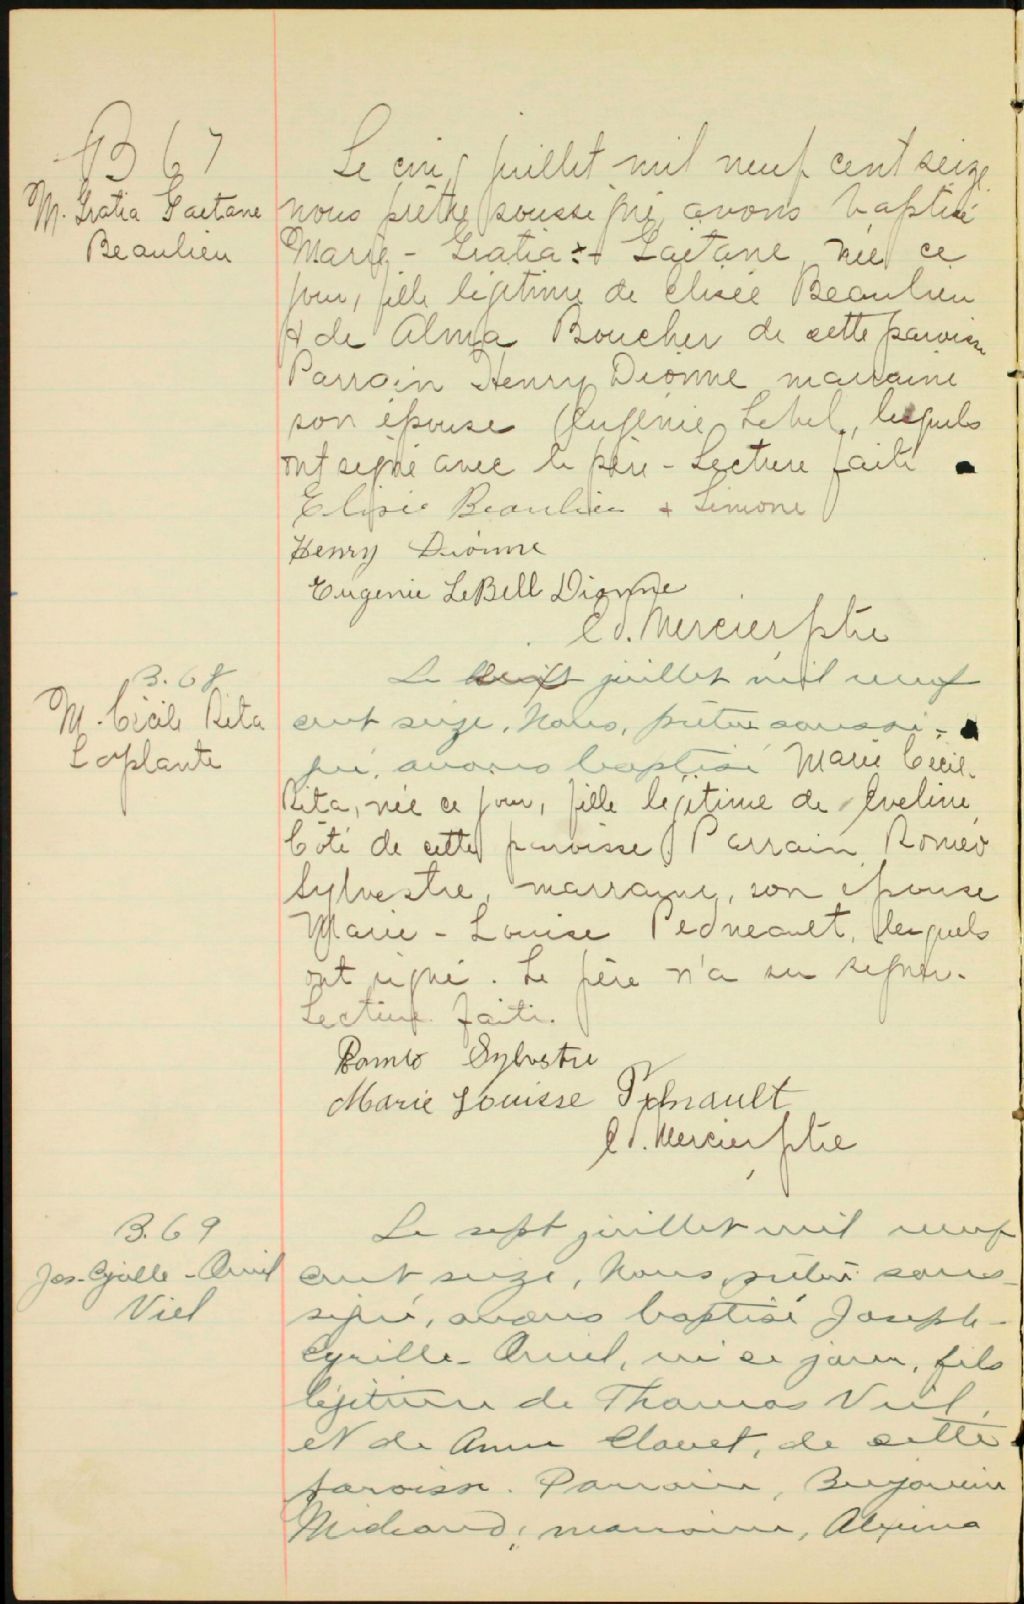 B 67
M. Gratia Gaetane
Beaulieu
Le cinq juillet mil neuf cent seize
nous prêtre soussigné, avons baptisé
Marie - Gratia + Gaëtane née ce
jour, fille légitime de Elisée Beaulieu
et de Alma Boucher de cette paroisse
Parrain Henry Dionne marraine
son épouse Eugénie Lebel, lesquels
ont signé avec le père - Lecture faite
Elisée Beaulieu + Simone
Henry Dionne
Eugenie LeBell Dionne
Ed. Mercier ptre
B. 68
M. Cécile Rita
Laplante
Le juillet mil neuf
cent seize, Nous, prêtre soussi-
gné, avons baptisé Marie Cécile
Rita, née ce jour, fille légitime de Eveline
Côté de cette paroisse Parrain Roméo
Sylvestre, marraine, son épouse
Marie - Louise Pedneault, lesquels
ont signé. Le père n'a su signer.
Lecture faite.
Romeo Sylvestre
Marie Louisse
Ed. Mercier ptre
B. 69
Jos-Cyrille-
Viel
Le sept juillet mil neuf
cent seize, Nous, prêtre sous-
signé, avons baptisé Joseph-
Cyrille- né ce jour, fils
légitime de Thomas Viel,
et de Anna Clouet, de cette
paroisse. Parrain, Benjamin
Michaud; marraine, Alexina